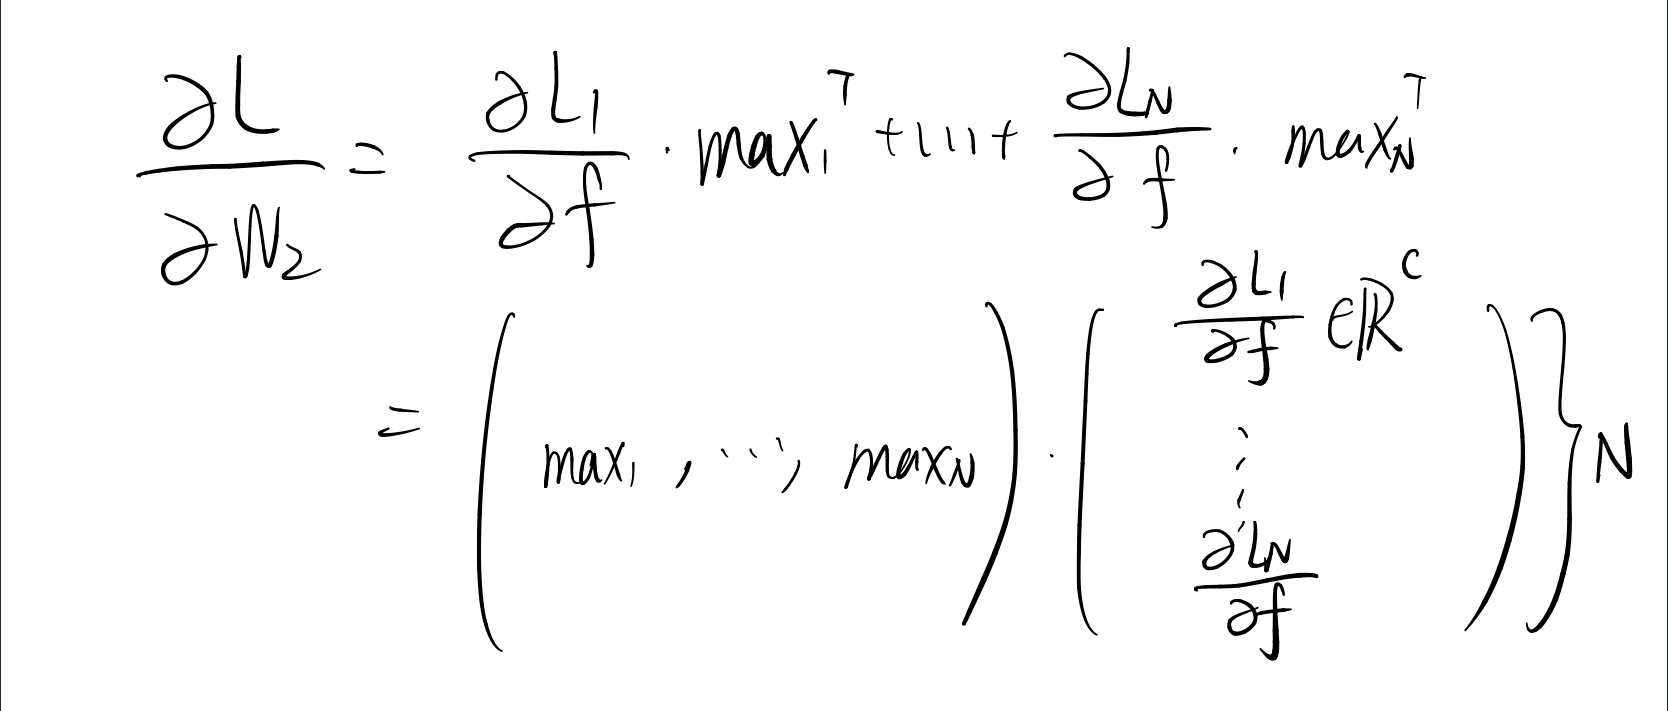 ∂L/∂W₂ = ∂L₁/∂f · max₁ᵀ + ... + ∂L_N/∂f · max_Nᵀ
= ( max₁ , ... , max_N ) · ( ∂L₁/∂f ∈ ℝᶜ ⋮ ∂L_N/∂f ) } N